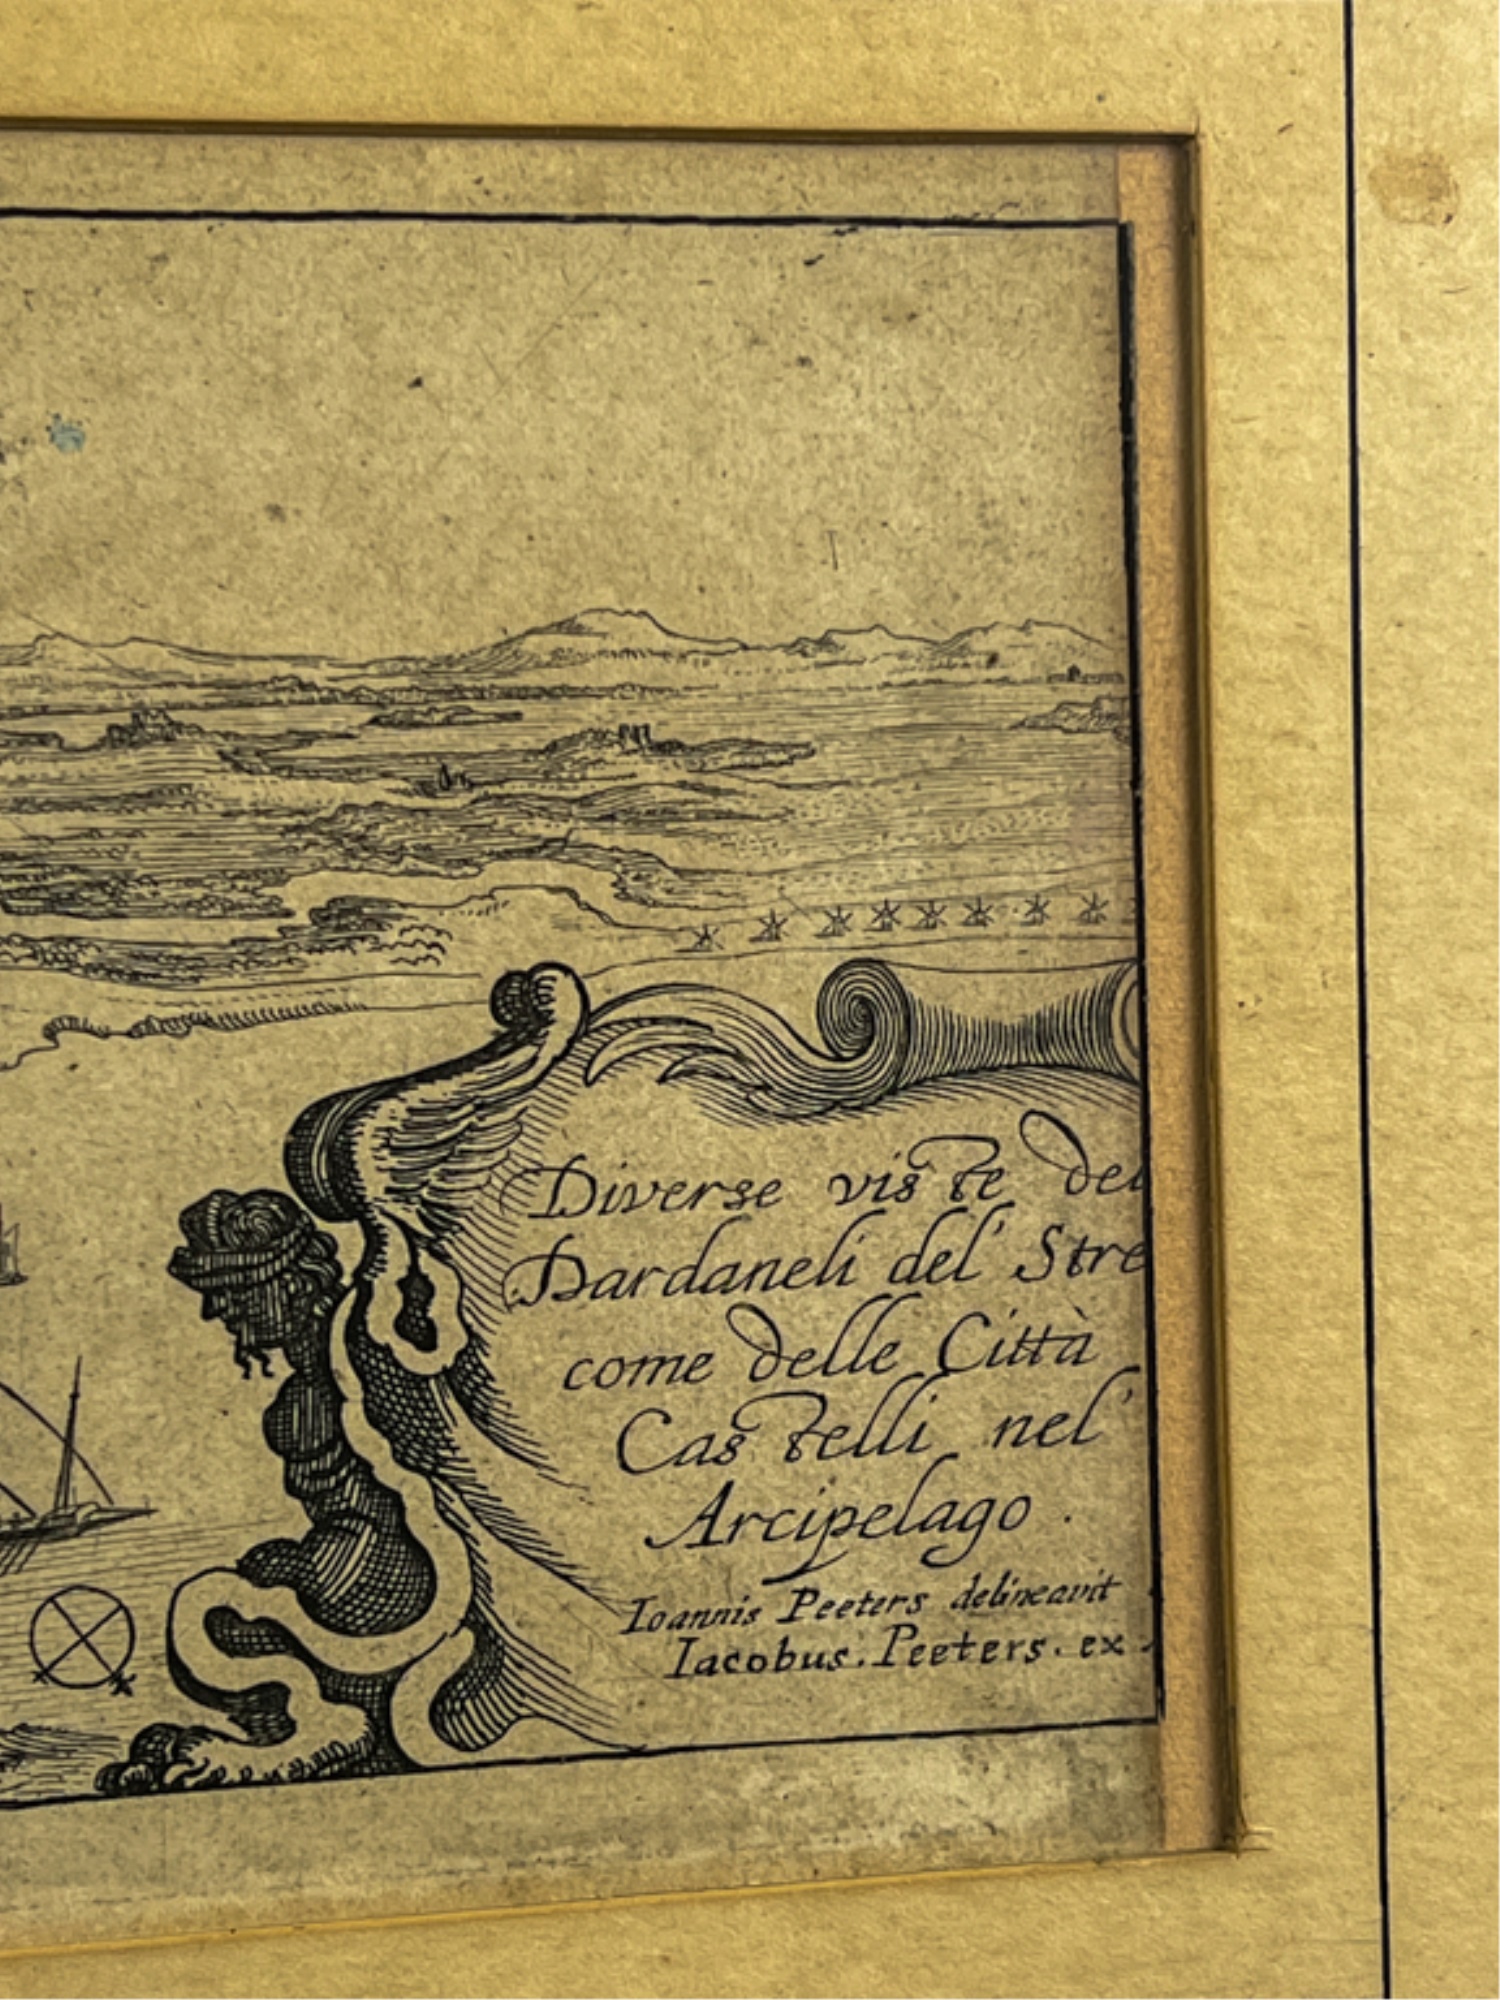 Diverse viste del
Dardaneli del' Stre
come delle Città
Castelli nel'
Arcipelago .
Ioannis Peeters delineavit
Iacobus . Peeters . ex .